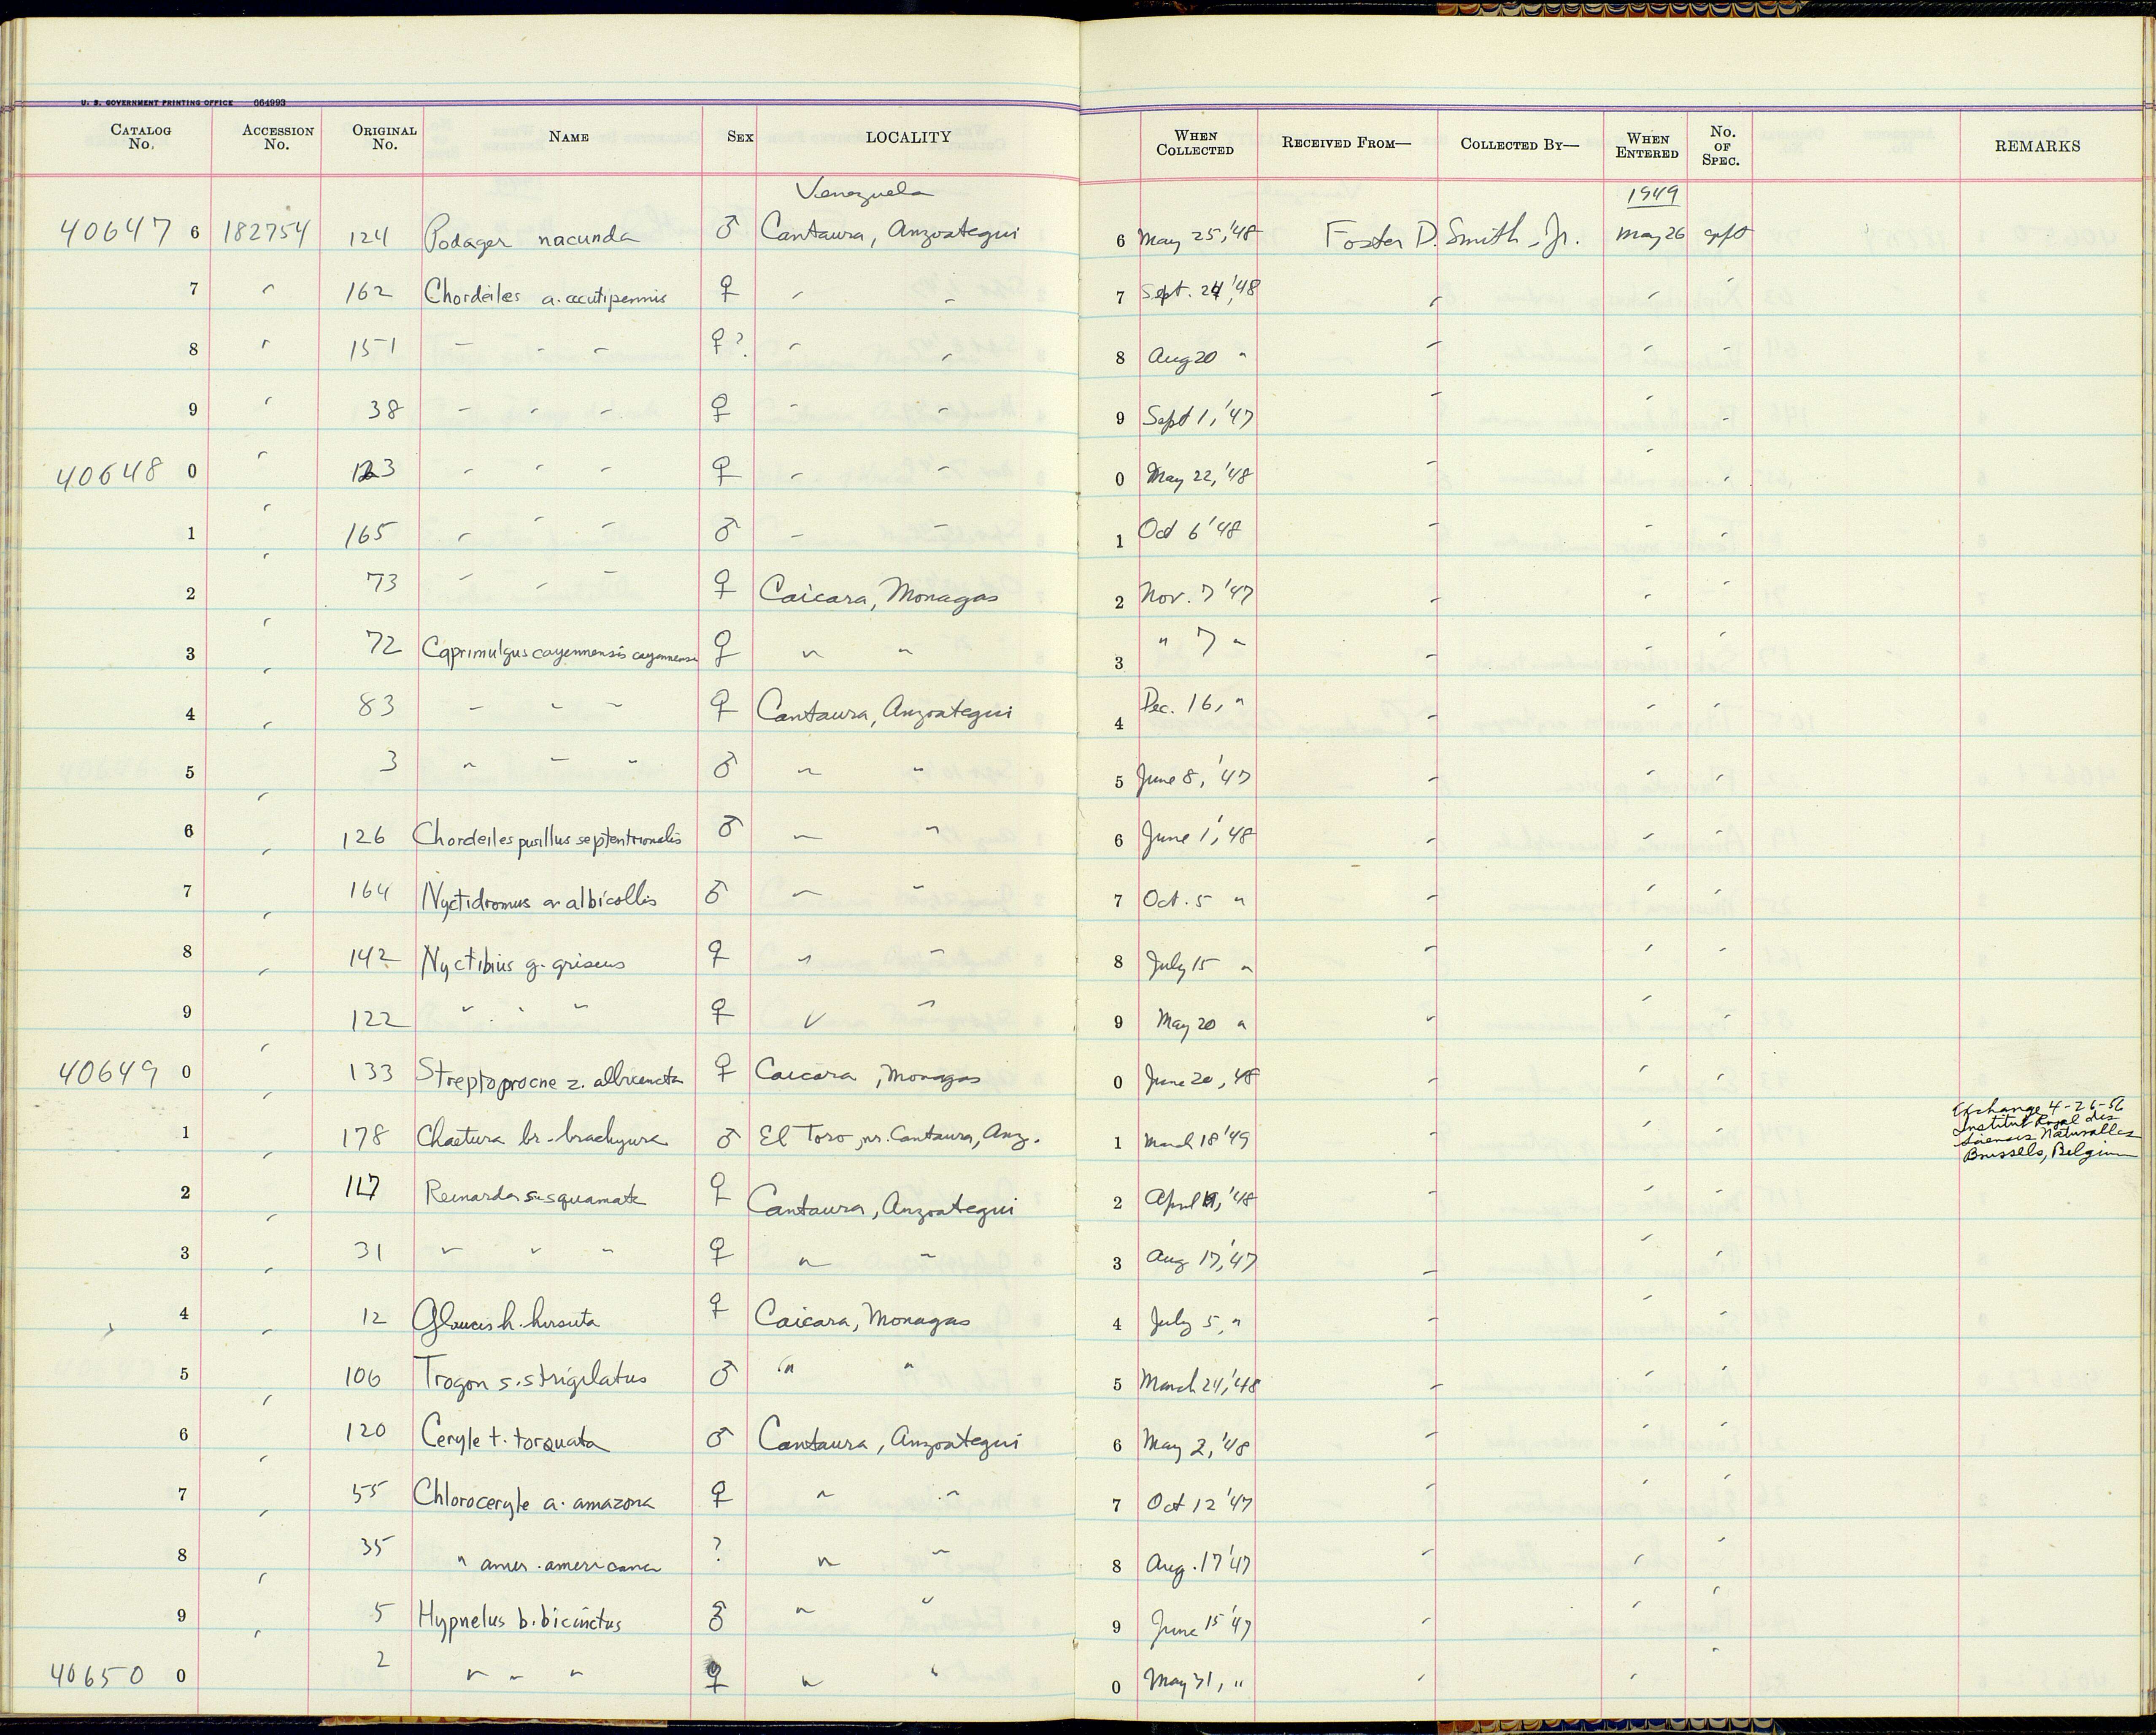 U. S. GOVERNMENT PRINTING OFFICE 664993
CATALOG No. ACCESSION No. ORIGINAL No. NAME SEX LOCALITY WHEN COLLECTED RECEIVED FROM— COLLECTED BY— WHEN ENTERED No. OF SPEC. REMARKS
Venezuela 1949
40647 6 182754 124 Podager nacunda ♂ Cantaura, Anzoategui 6 May 25, '48 Foster D. Smith, Jr. May 26
7 " 162 Chordeiles a. acutipennis ♀ " " 7 Sept. 24, '48 " " "
8 " 151 " " " ♀? " " 8 Aug 20 " " " "
9 " 38 " " " ♀ " " 9 Sept 1, '47 " " "
40648 0 " 123 " " " ♀ " " 0 May 22, '48 " " "
1 " 165 " " " ♂ " " 1 Oct 6 '48 " " "
2 " 73 " " " ♀ Caicara, Monagas 2 Nov. 7 '47 " " "
3 " 72 Caprimulgus cayennensis cayennensis ♀ " " 3 " 7 " " " "
4 " 83 " " " ♀ Cantaura, Anzoategui 4 Dec. 16, " " " "
5 " 3 " " " ♂ " " 5 June 8, '47 " " "
6 " 126 Chordeiles pusillus septentrionalis ♂ " " 6 June 1, '48 " " "
7 " 164 Nyctidromus a. albicollis ♂ " " 7 Oct. 5 " " " "
8 " 142 Nyctibius g. griseus ♀ " " 8 July 15 " " " "
9 " 122 " " " ♀ " " 9 May 20 " " " "
40649 0 " 133 Streptoprocne z. albicincta ♀ Caicara, Monagas 0 June 20, 48 " " "
1 " 178 Chaetura br. brachyura ♂ El Toro, nr. Cantaura, Anz. 1 March 18 '49 " " " Exchange 4-26-56
Institut Royal des
Sciences Naturalles
Brussels, Belgium
2 " 117 Reinarda s. squamata ♀ Cantaura, Anzoategui 2 April '48 " " "
3 " 31 " " " ♀ " " 3 Aug 17, '47 " " "
4 " 12 Glaucis h. hirsuta ♀ Caicara, Monagas 4 July 5, " " " "
5 " 106 Trogon s. strigilatus ♂ " " 5 March 24, '48 " " "
6 " 120 Ceryle t. torquata ♂ Cantaura, Anzoategui 6 May 2, '48 " " "
7 " 55 Chloroceryle a. amazona ♀ " " 7 Oct 12 '47 " " "
8 " 35 " amer. americana ? " " 8 Aug. 17 '47 " " "
9 " 5 Hypnelus b. bicinctus ♂ " " 9 June 15 '47 " " "
40650 0 2 " " " ♀ " " 0 May 31, " " " "